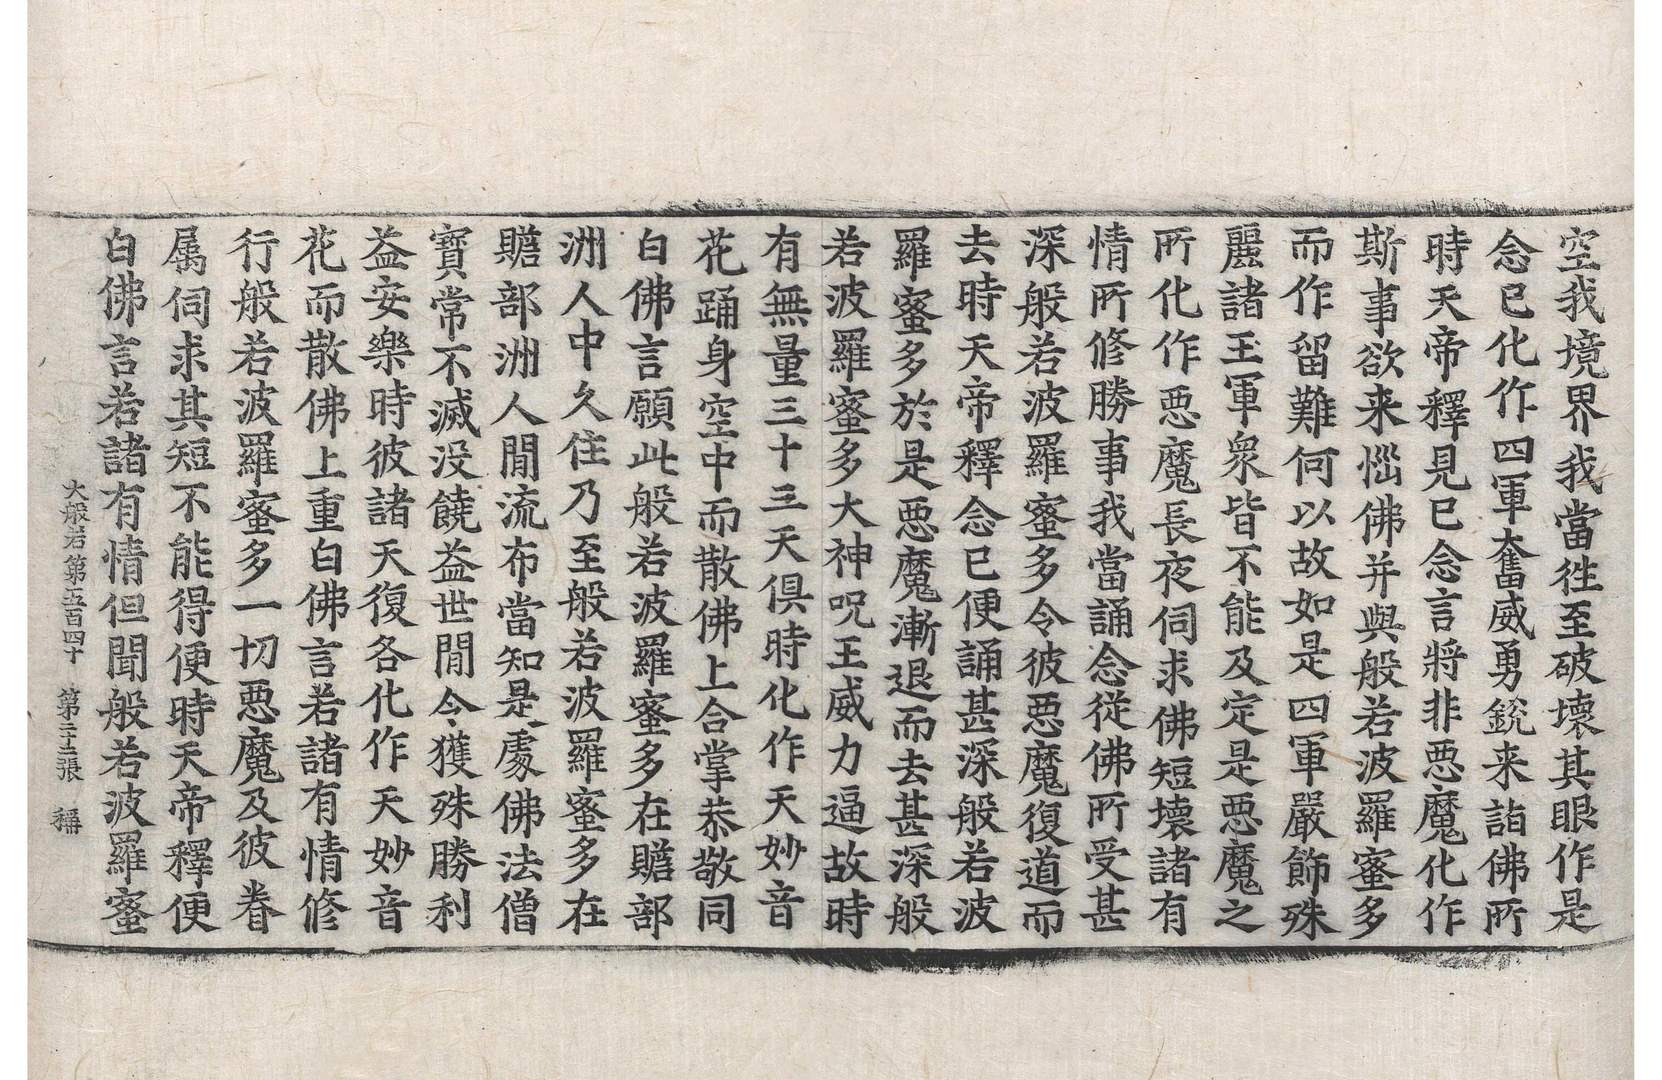 空我境界我當往至破壞其眼作是
念已化作四軍奮威勇銳来詣佛所
時天帝釋見已念言將非惡魔化作
斯事欲来惱佛并與般若波羅蜜多
而作留難何以故如是四軍嚴飾殊
麗諸王軍衆皆不能及定是惡魔之
所化作惡魔長夜伺求佛短壞諸有
情所修勝事我當誦念從佛所受甚
深般若波羅蜜多令彼惡魔復道而
去時天帝釋念已便誦甚深般若波
羅蜜多於是惡魔漸退而去甚深般
若波羅蜜多大神呪王威力逼故時
有無量三十三天俱時化作天妙音
花踊身空中而散佛上合掌恭敬同
白佛言願此般若波羅蜜多在贍部
洲人中久住乃至般若波羅蜜多在
贍部洲人間流布當知是處佛法僧
寶常不滅没饒益世間令獲殊勝利
益安樂時彼諸天復各化作天妙音
花而散佛上重白佛言若諸有情修
行般若波羅蜜多一切惡魔及彼眷
属伺求其短不能得便時天帝釋便
白佛言若諸有情但聞般若波羅蜜
大般若第五百四十　第二十五張　稱